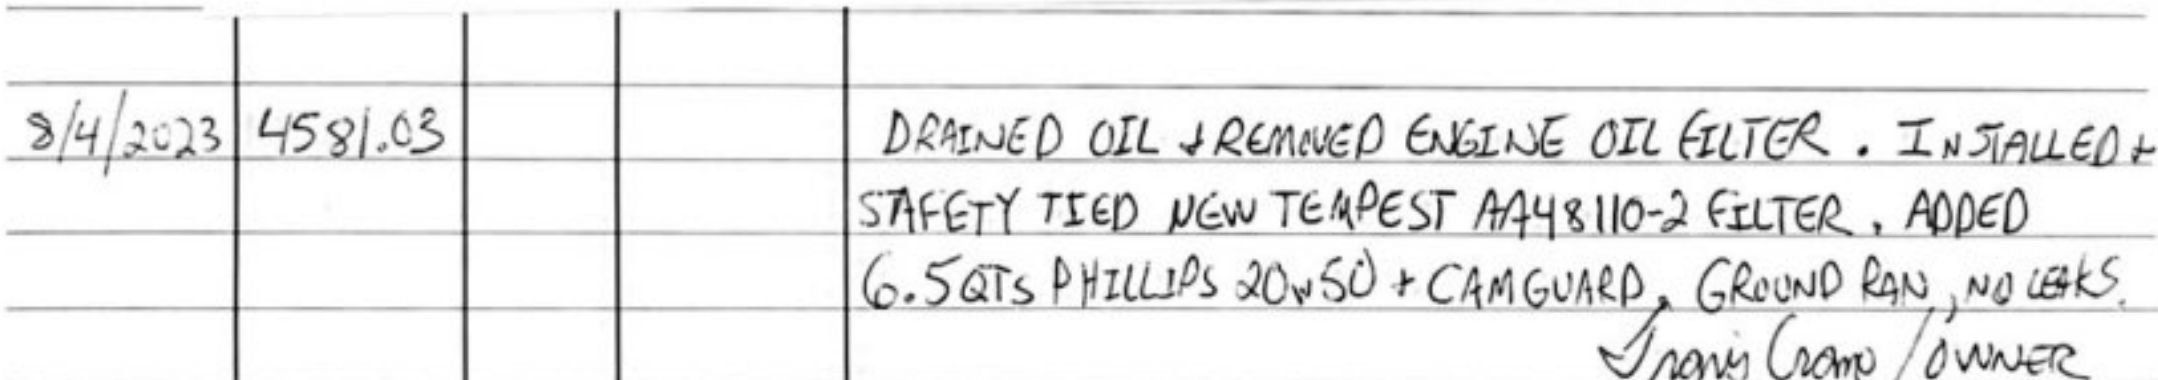 8/4/2023 4581.03 DRAINED OIL & REMOVED ENGINE OIL FILTER. INSTALLED &
SAFETY TIED NEW TEMPEST AA48110-2 FILTER. ADDED
6.5 QTS PHILLIPS 20W50 + CAMGUARD. GROUND RAN, NO LEAKS.
/OWNER